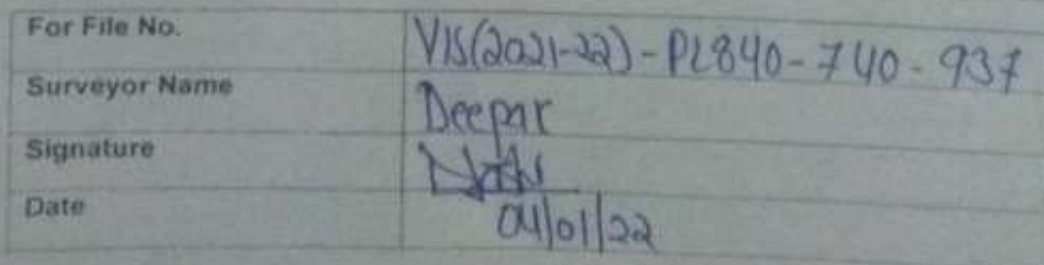 For File No. VIS(2021-22)-PL840-740-937
Surveyor Name Deepak
Signature
Date 04/01/22